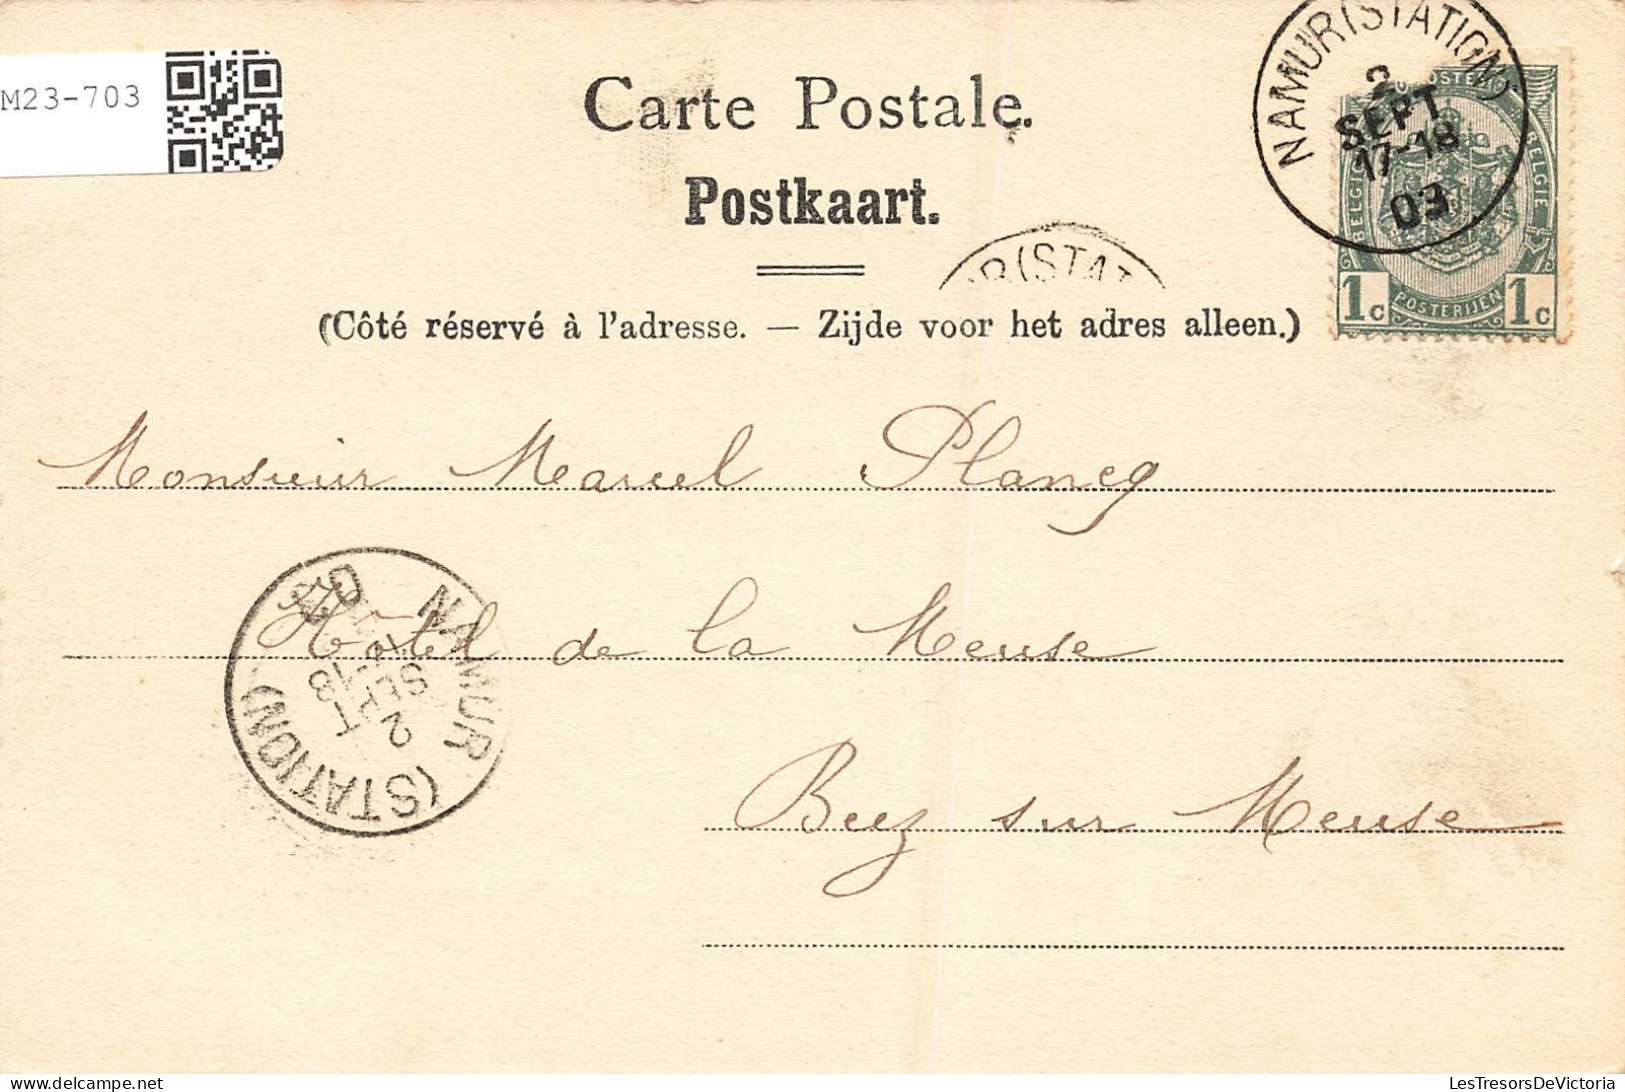 M23-703
Carte Postale.
Postkaart.
(Côté réservé à l'adresse. — Zijde voor het adres alleen.)
NAMUR (STATION)
2
SEPT
17-18
03
POSTES
BELGIQUE
BELGIE
1c POSTERIJEN 1c
UR (STAT
Monsieur Marcel Plancq
Hôtel de la Meuse
Beez sur Meuse
NAMUR (STATION)
2
SEPT
18
03
LesTresorsDeVictoria
LesTresorsDeVictoria